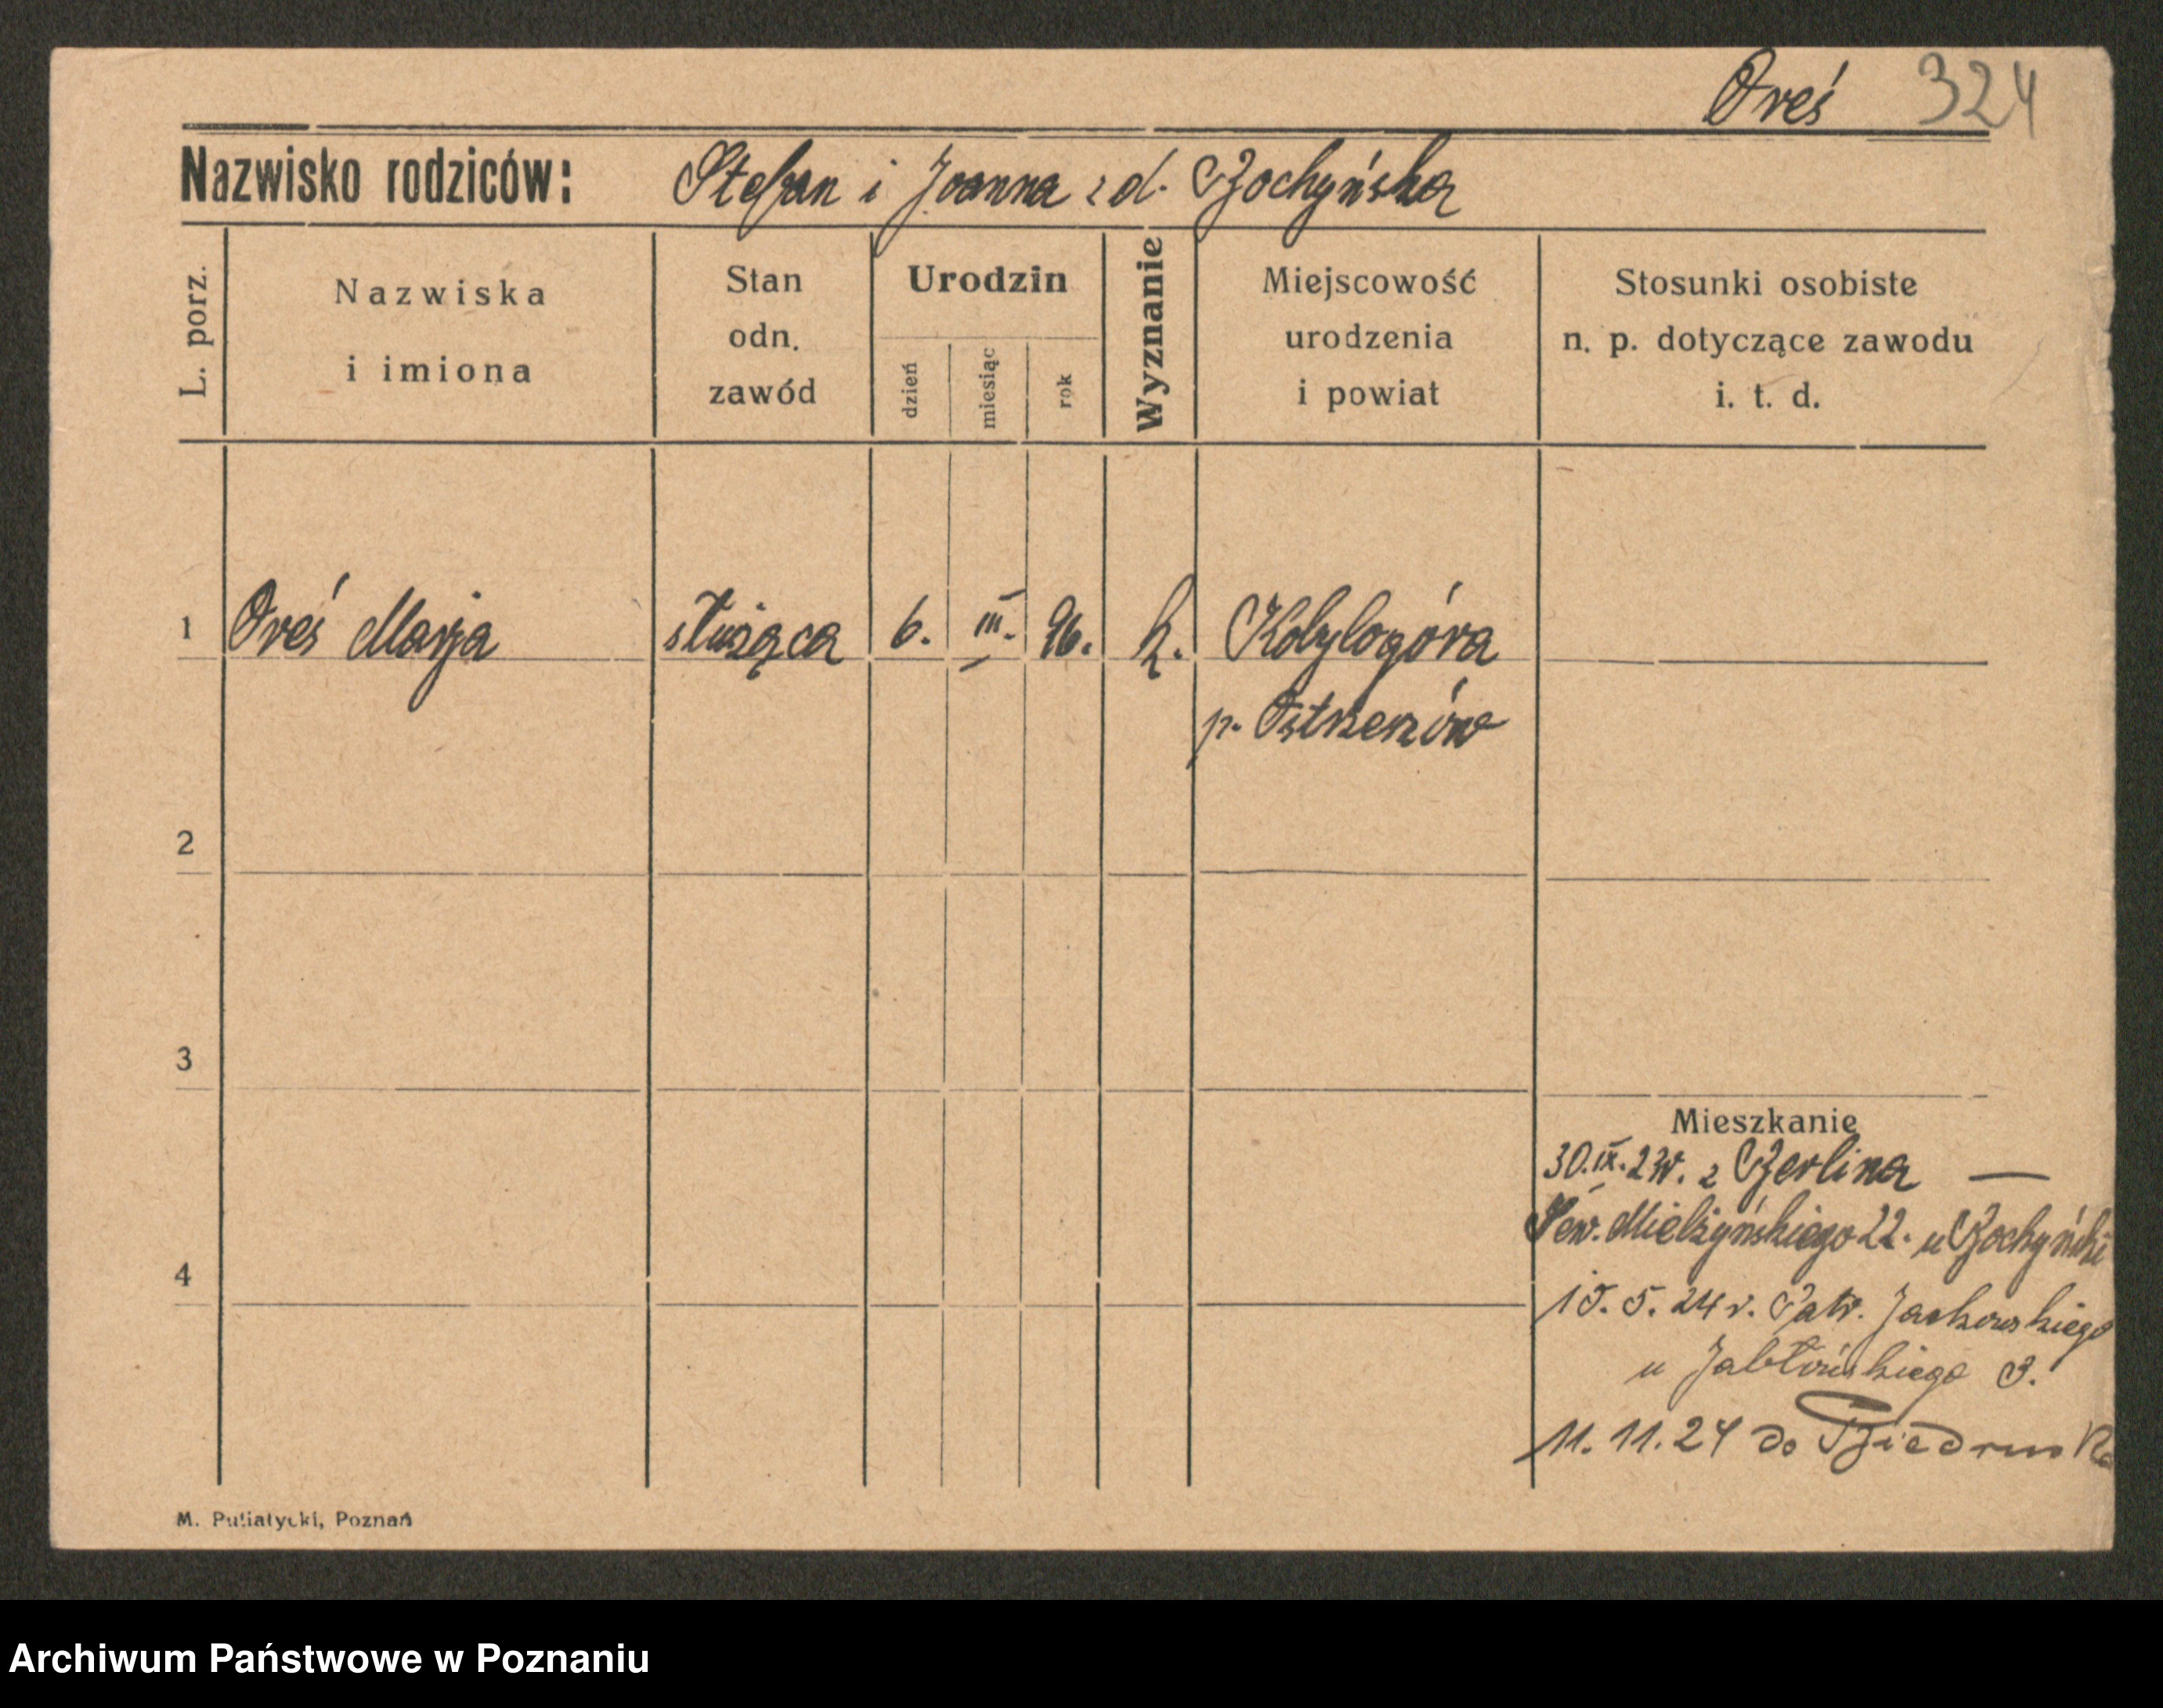 Oreś 324
Nazwisko rodziców: Stefan i Joanna z d. Bochyńska
L. porz.
Nazwiska
i imiona
Stan
odn.
zawód
Urodzin
dzień
miesiąc
rok
Wyznanie
Miejscowość
urodzenia
i powiat
Stosunki osobiste
n. p. dotyczące zawodu
i. t. d.
1 Oreś Marja służąca 6. III. 96. k. Kobylogóra
p. Ostrzeszów
2
3
Mieszkanie
30.IX.23r. z Berlina —
Sew. Mielżyńskiego 22. u Bochyński
4
15. 5. 24 r. Patr. Jackowskiego
u Jabłońskiego 3.
11. 11. 24 do Biedruska
M. Putiatycki, Poznań
Archiwum Państwowe w Poznaniu